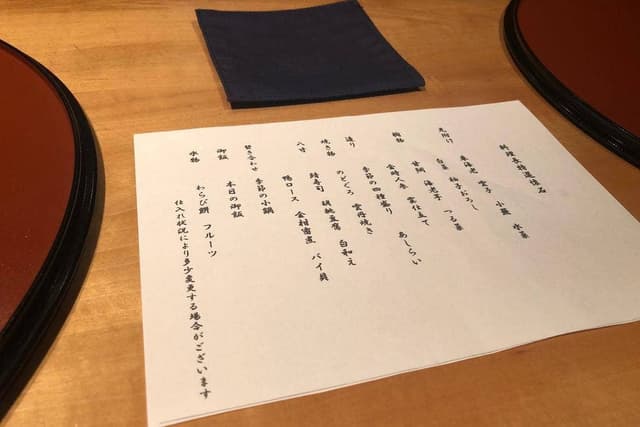 料理長特選懐石
先附け
雲子 小蕪 水菜
車海老 柚子おろし
白菜 つる菜
椀物
甘鯛 海老芋
金時人参 雲仕立て
あしらい
造り
季節の四種盛り
焼き物
のどぐろ 雲丹焼き
八寸
鯖寿司 胡桃豆腐 白和え
鴨ロース 金柑蜜煮 バイ貝
炊き合わせ
季節の小鍋
御飯
本日の御飯
水物
わらび餅 フルーツ
仕入れ状況により多少変更する場合がございます